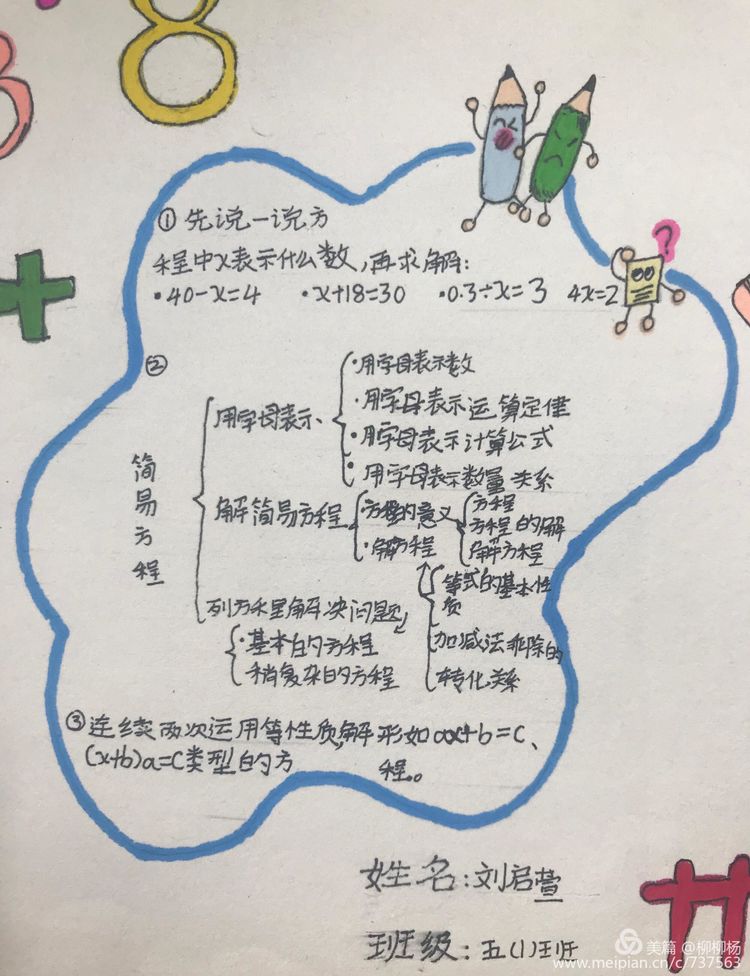 8
①先说一说方
程中x表示什么数,再求解:
·40-x=4 ·x+18=30 ·0.3÷x=3 4x=2
?
②
简易方程
用字母表示、
·用字母表示数
·用字母表示运算定律
·用字母表示计算公式
·用字母表示数量关系
解简易方程
方程的意义
·解方程
方程
方程的解
解方程
等式的基本性
质
加减法乖除的
转化关系
列方程解决问题
·基本的方程
稍复杂的方程
③连续两次运用等性质,解形如ax+b=c、
(x+b)a=c类型的方 程。
姓名:刘启萱
班级:五(1)班
美篇 @柳柳杨
www.meipian.cn/c/737563